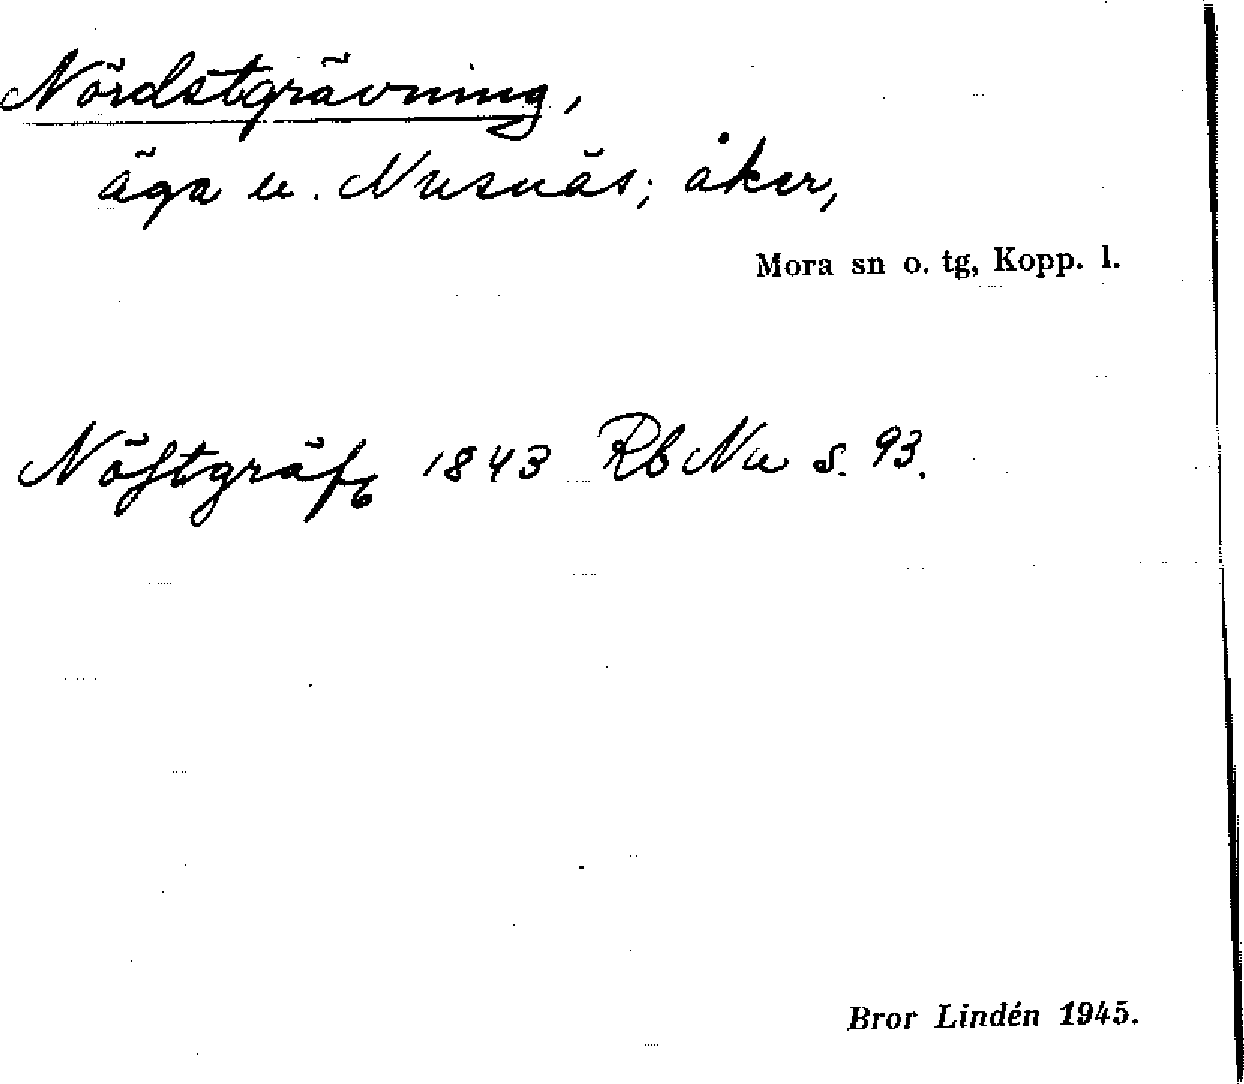 Nördstgrävning,
äga u. Nusnäs; åker,
Mora sn o. tg, Kopp. l.
Nöſtgräf 1843 Rb Nu s. 93.
Bror Lindén 1945.